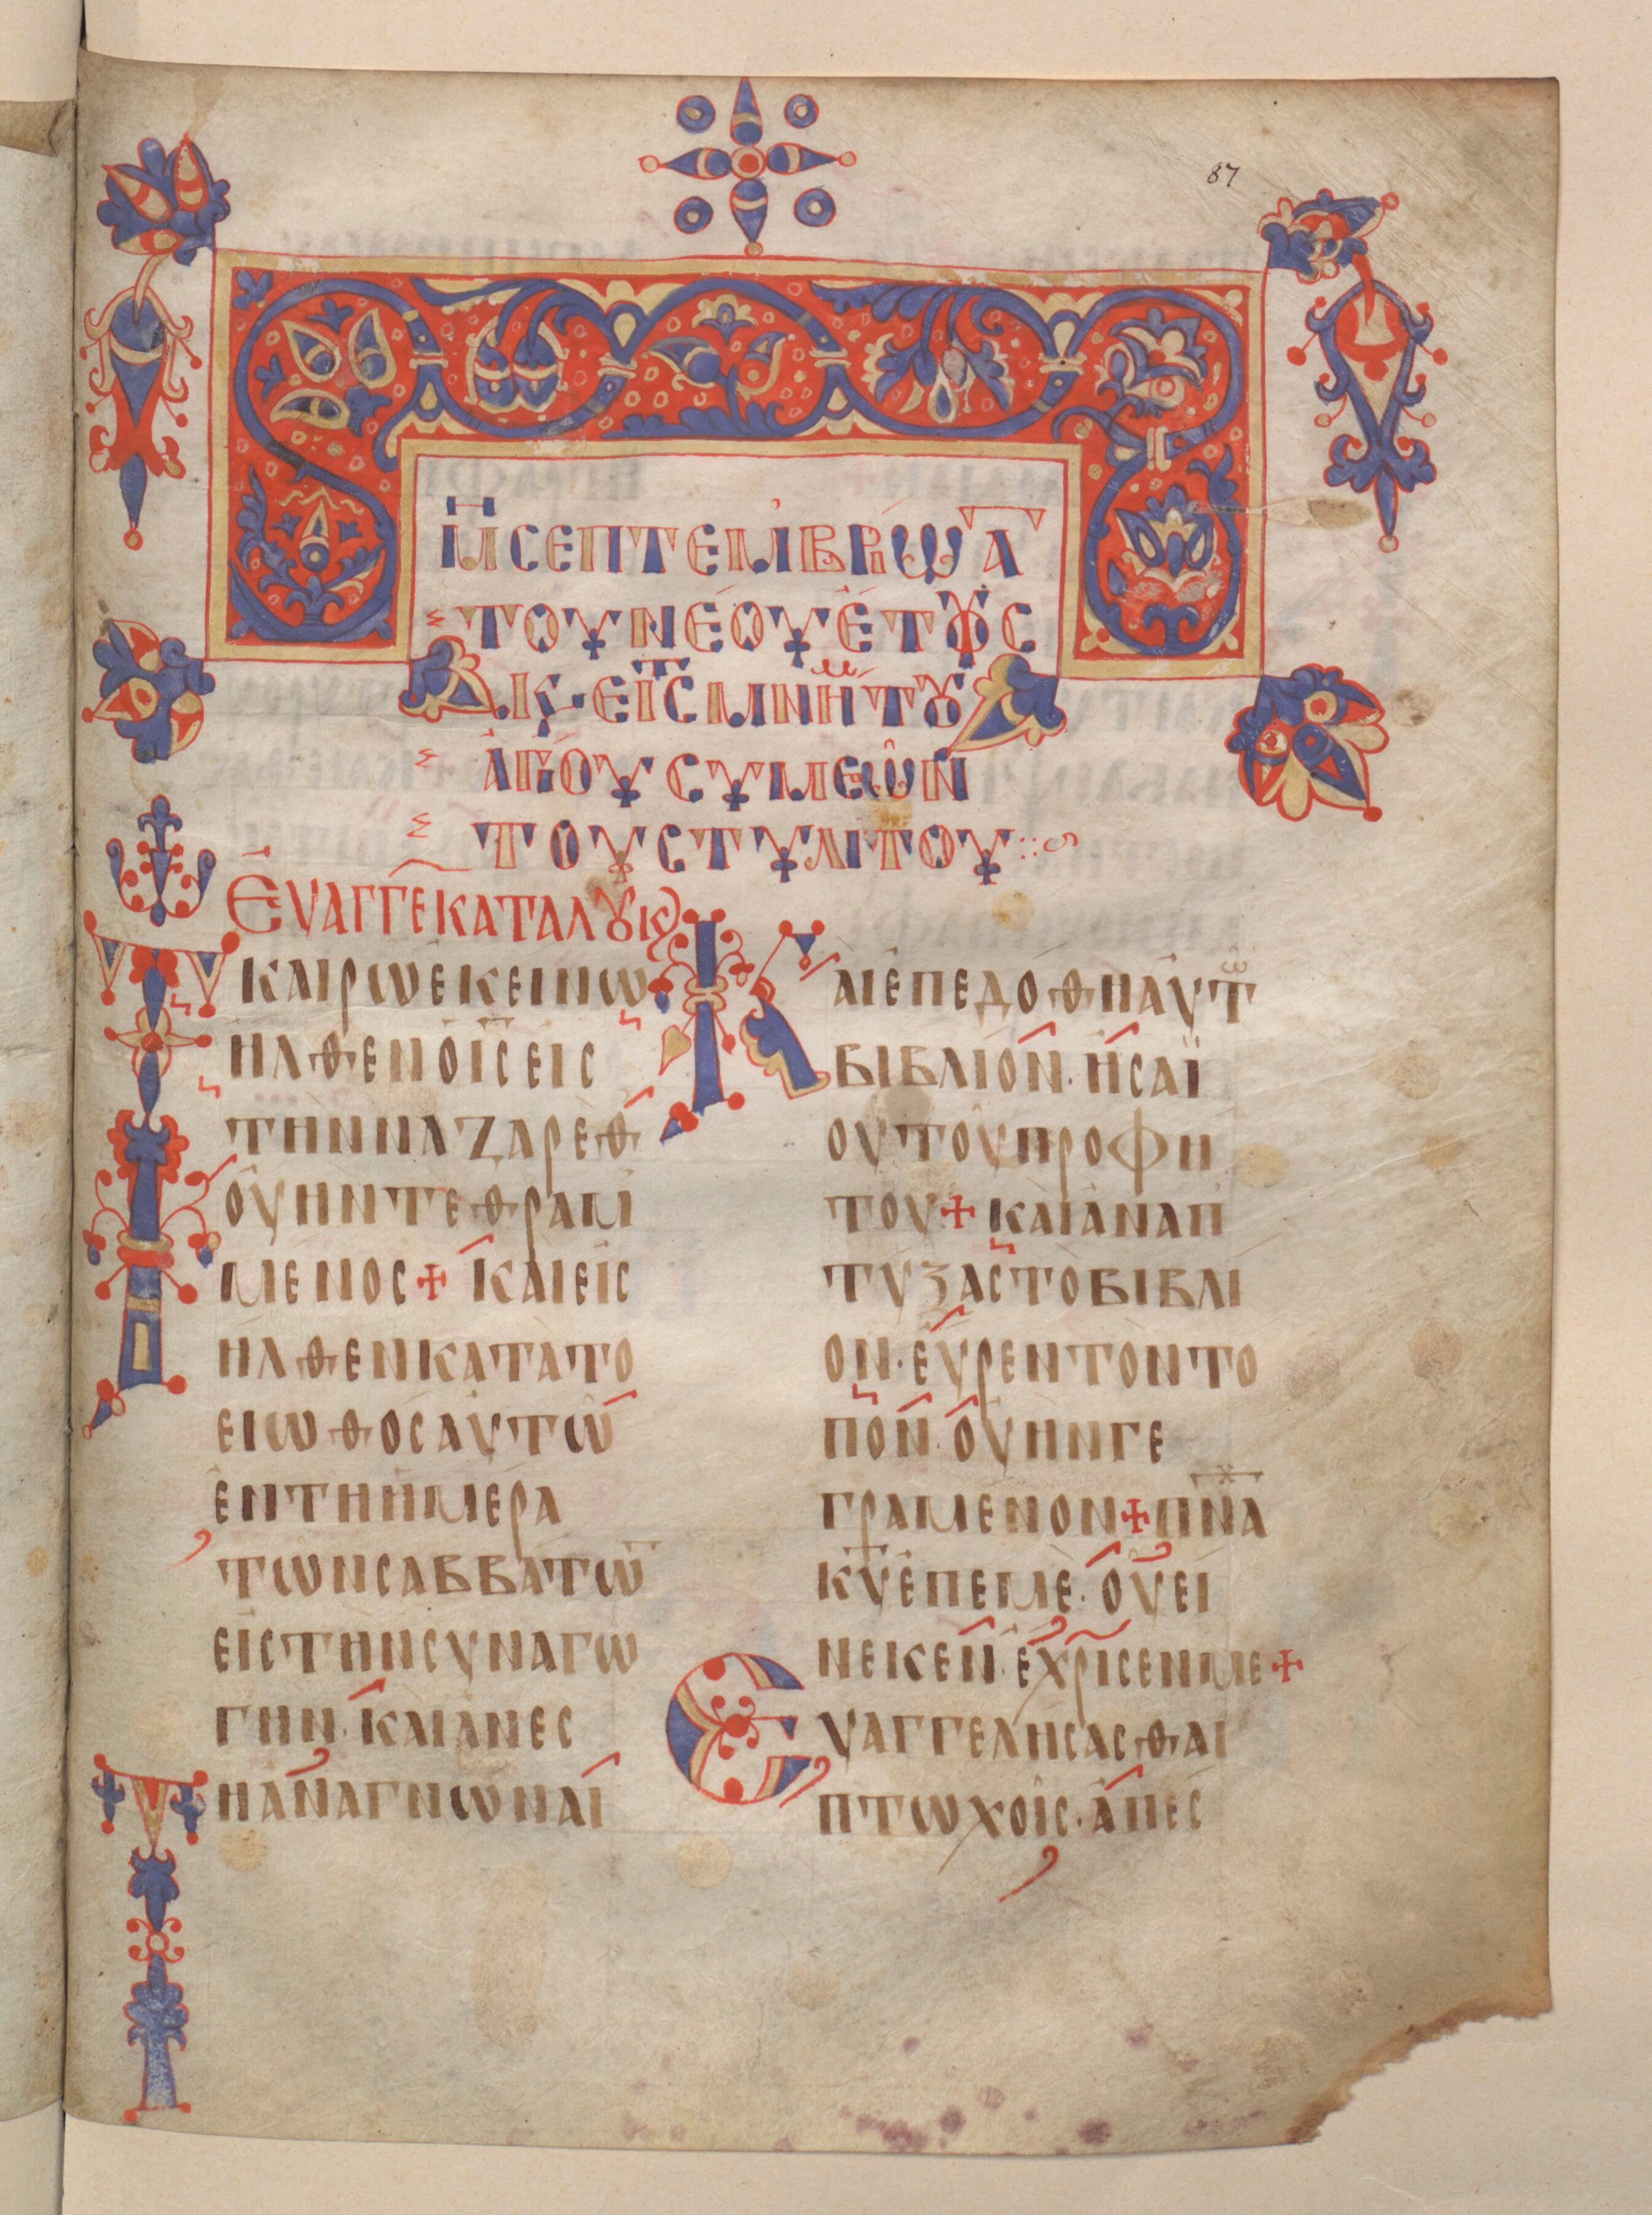 87
ΜΗ ΣΕΠΤΕΜΒΡΙΩ Α
ΤΟΥ ΝΕΟΥ ΕΤȢΣ
Κ ΕΙΣ Τ ΜΝΗΜ ΤȢ
ΑΓΙΟΥ ΣΥΜΕΩΝ
ΤΟΥ ΣΤΥΛΙΤΟΥ
ΕΥΑΓΓΕ ΚΑΤΑ ΛȢΚ
Τ ΚΑΙΡΩ ΕΚΕΙΝΩ
ΗΛΘΕΝ Ο ΙΣ ΕΙΣ
ΤΗΝ ΝΑΖΑΡΕΘ
ΟΥ ΗΝ ΤΕΘΡΑΜ
ΜΕΝΟΣ + ΚΑΙ ΕΙΣ
ΗΛΘΕΝ ΚΑΤΑ ΤΟ
ΕΙΩΘΟΣ ΑΥΤΩ
ΕΝ ΤΗ ΗΜΕΡΑ
ΤΩΝ ΣΑΒΒΑΤΩ
ΕΙΣ ΤΗΝ ΣΥΝΑΓΩ
ΓΗΝ · ΚΑΙ ΑΝΕΣ
ΤΗ ΑΝΑΓΝΩΝΑΙ
ΚΑΙ ΕΠΕΔΟΘΗ ΑΥΤΩ
ΒΙΒΛΙΟΝ · ΗΣΑΪ
ΟΥ ΤΟΥ ΠΡΟΦΗ
ΤΟΥ + ΚΑΙ ΑΝΑΠ
ΤΥΞΑΣ ΤΟ ΒΙΒΛΙ
ΟΝ · ΕΥΡΕΝ ΤΟΝ ΤΟ
ΠΟΝ · ΟΥ ΗΝ ΓΕ
ΓΡΑΜΕΝΟΝ + ΠΝΑ
ΚΥ ΕΠ ΕΜΕ · ΟΥ ΕΙ
ΝΕΚΕΝ · ΕΧΡΙΣΕΝ ΜΕ +
ΕΥΑΓΓΕΛΗΣΑΣΘΑΙ
ΠΤΩΧΟΙΣ · ΑΠΕΣ